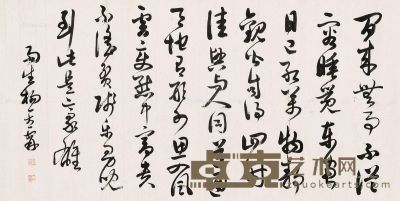 閒来無事不從
容睡覺東窗
日已紅萬物靜
觀皆自得四時
佳興与人同道通
天地有形外思入風
雲變態中富貴
不淫貧賤樂男兒
到此是豪雄
雨生楊
卓克艺术网